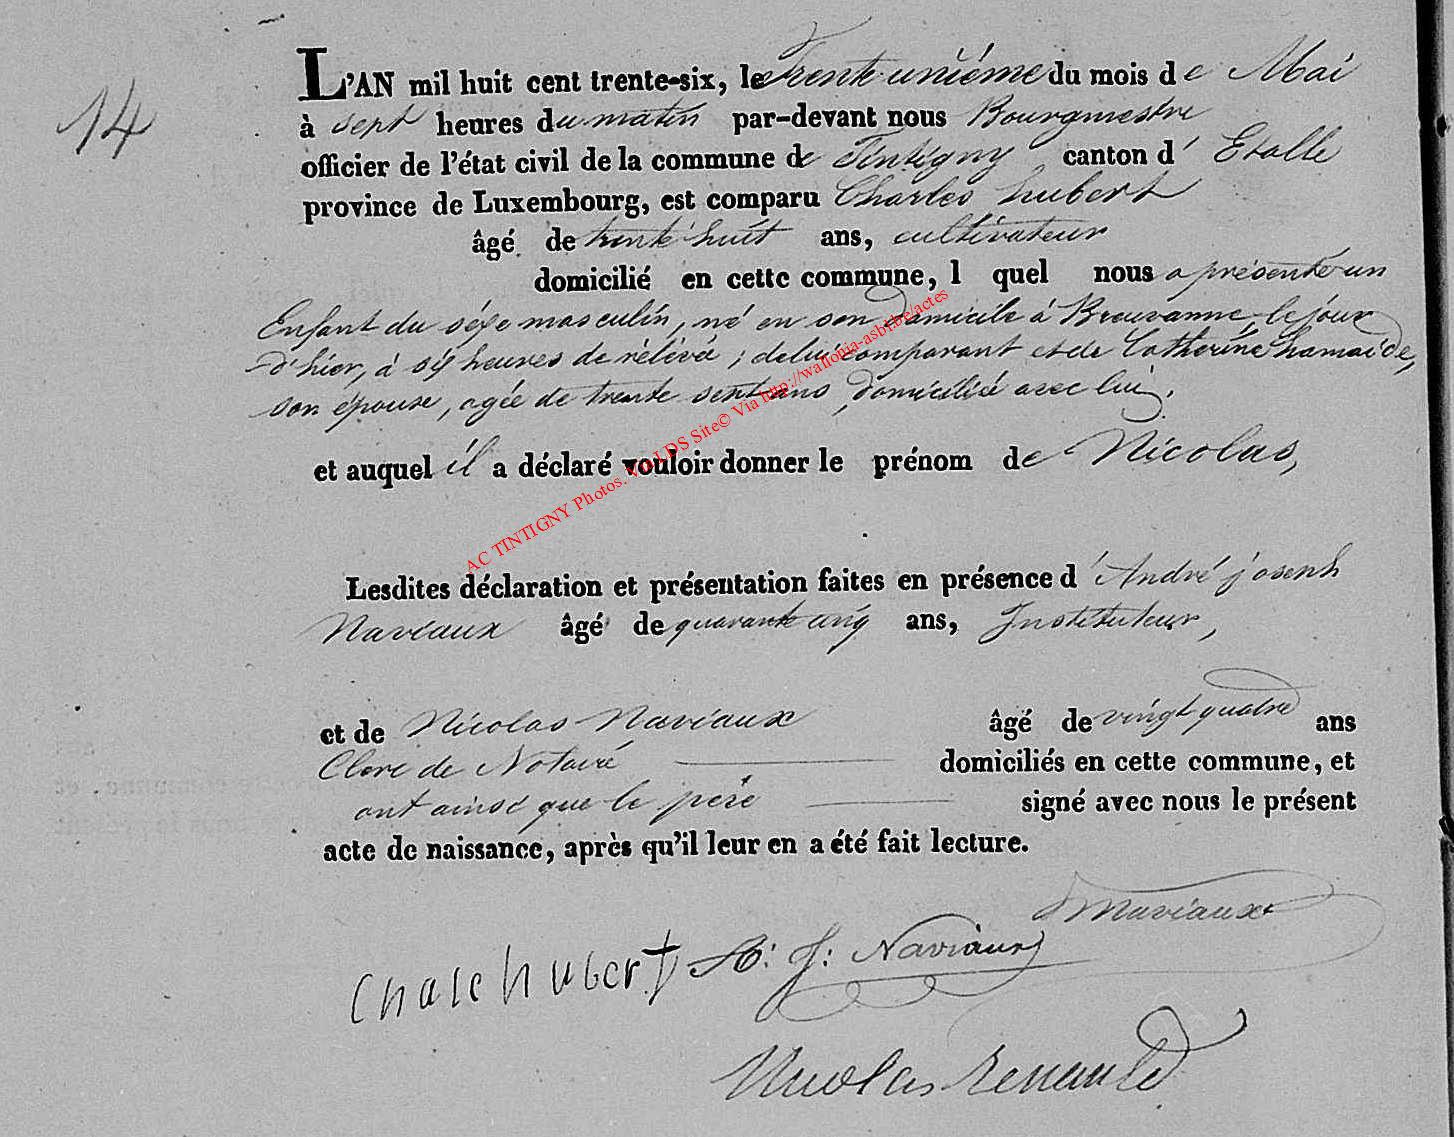 14
L'AN mil huit cent trente-six, le Trente uniéme du mois de Mai
à sept heures du matin par-devant nous Bourgmestre
officier de l'état civil de la commune de Tintigny canton d' Etalle
province de Luxembourg, est comparu Charles hubert
âgé de trente huit ans, cultivateur
domicilié en cette commune, l quel nous a présenté un
Enfant du séxe masculin, né en son domicile à Breuvanne, le jour
d'hier, à six heures de rélévée ; de lui comparant et de Catherine hamaide,
son épouse, agée de trente sept ans, domicilié avec lui,
et auquel il a déclaré vouloir donner le prénom de Nicolas,
Lesdites déclaration et présentation faites en présence d' André joseph
Naviaux âgé de quarante cinq ans, Instituteur,
et de Nicolas Naviaux âgé de vingt quatre ans
Clerc de Notaire domiciliés en cette commune, et
ont ainsi que le père signé avec nous le présent
acte de naissance, après qu'il leur en a été fait lecture.
Naviaux
Chale hubert A: J: Naviaux
Nicolas Renauld
AC TINTIGNY Photos. Via LDS Site© Via http://wallonia-asbl.be/actes